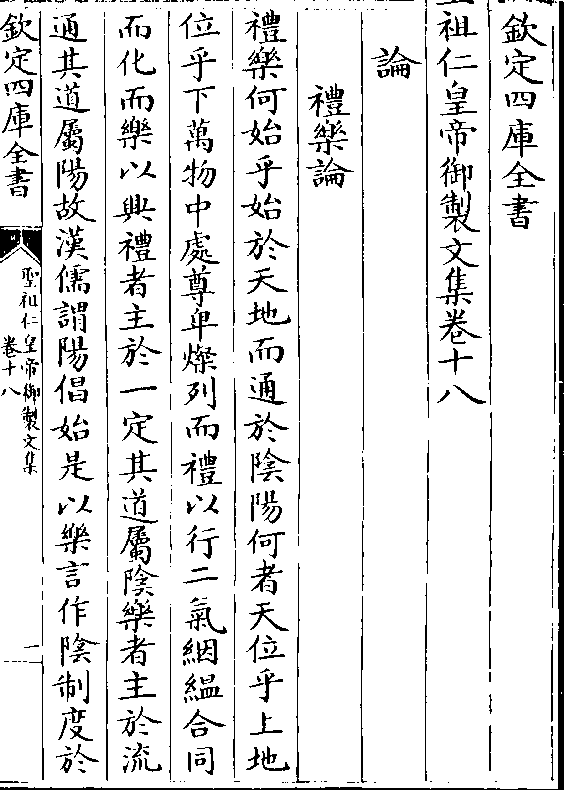 欽定四庫全書
聖祖仁皇帝御製文集卷十八
論
禮樂論
禮樂何始乎始於天地而通於陰陽何者天位乎上地
位乎下萬物中處尊卑燦列而禮以行二氣絪縕合同
而化而樂以興禮者主於一定其道屬陰樂者主於流
通其道屬陽故漢儒謂陽倡始是以樂言作陰制度於
欽定四庫全書
聖祖仁皇帝御製文集
卷十八
一